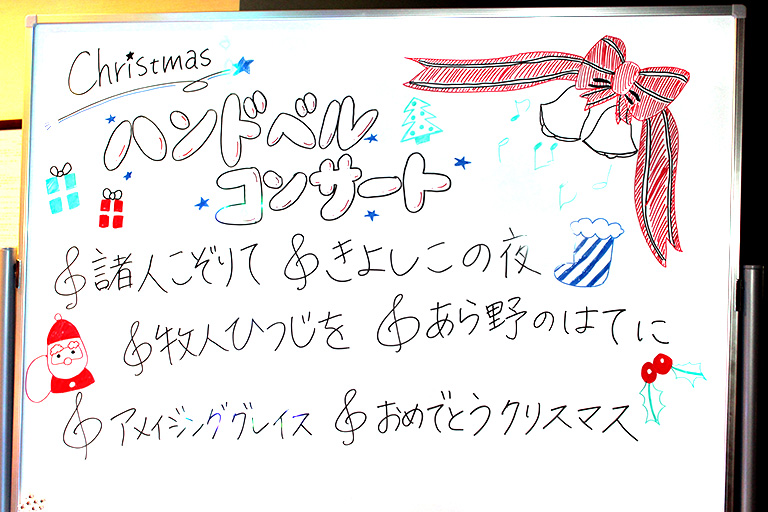 Christmas
ハンドベル
コンサート
諸人こぞりて きよしこの夜
牧人ひつじを あら野のはてに
アメイジンググレイス おめでとうクリスマス